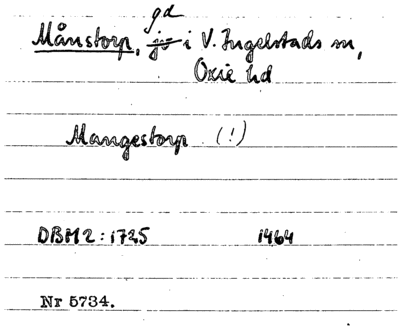 gd
Månstorp, i V. Ingelstads sn,
Oxie hd
Mangestorp (!)
DBM2:1725 1464
Nr 5734.